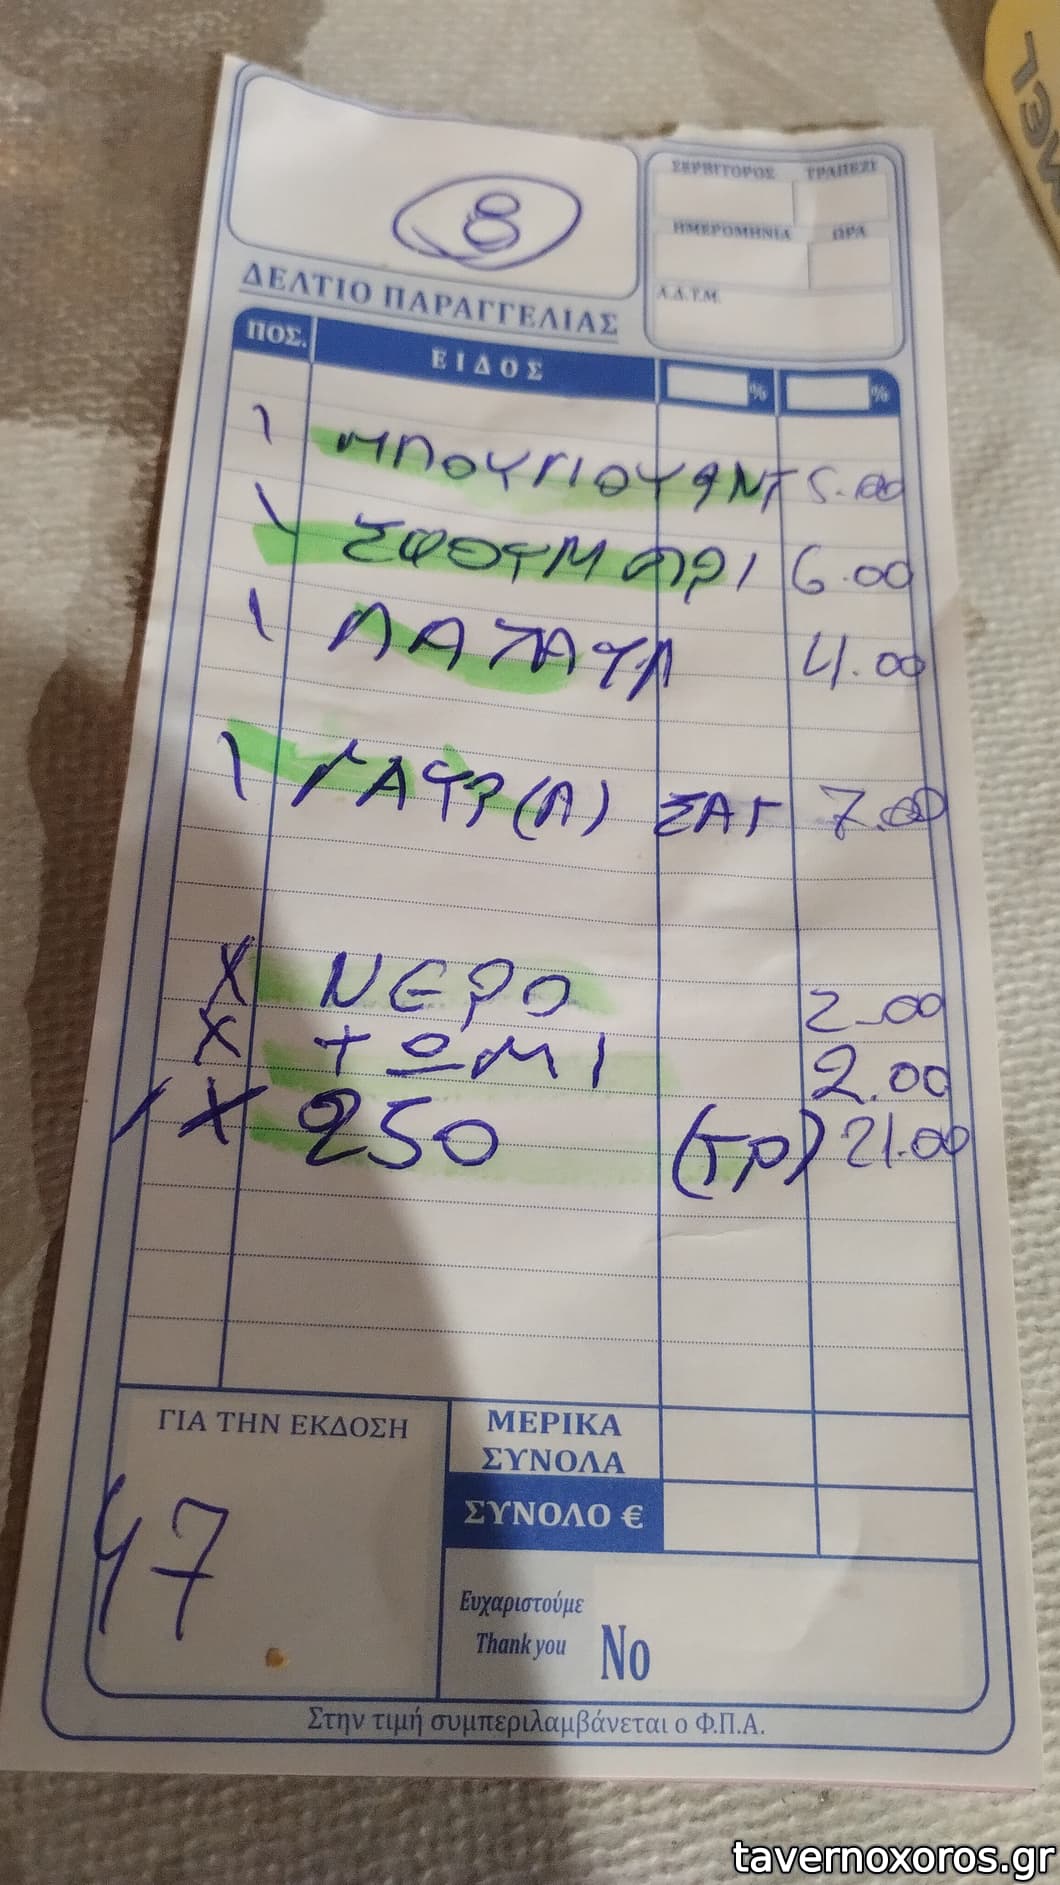 8
ΣΕΡΒΙΤΟΡΟΣ ΤΡΑΠΕΖΙ
ΗΜΕΡΟΜΗΝΙΑ ΩΡΑ
Α.Δ.Τ.Μ.
ΔΕΛΤΙΟ ΠΑΡΑΓΓΕΛΙΑΣ
ΠΟΣ. ΕΙΔΟΣ % %
1 ΜΠΟΥΓΙΟΥΡΝΤ 5.00
1 6.00
1 4.00
1 ΓΑΥΡ(Λ) ΣΑΓ 7.00
Χ ΝΕΡΟ 2.00
Χ ΨΩΜΙ 2.00
1 Χ 250 (ΤΡ) 21.00
ΓΙΑ ΤΗΝ ΕΚΔΟΣΗ
ΜΕΡΙΚΑ
ΣΥΝΟΛΑ
ΣΥΝΟΛΟ €
47
Ευχαριστούμε
Thank you No
Στην τιμή συμπεριλαμβάνεται ο Φ.Π.Α.
tavernoxoros.gr